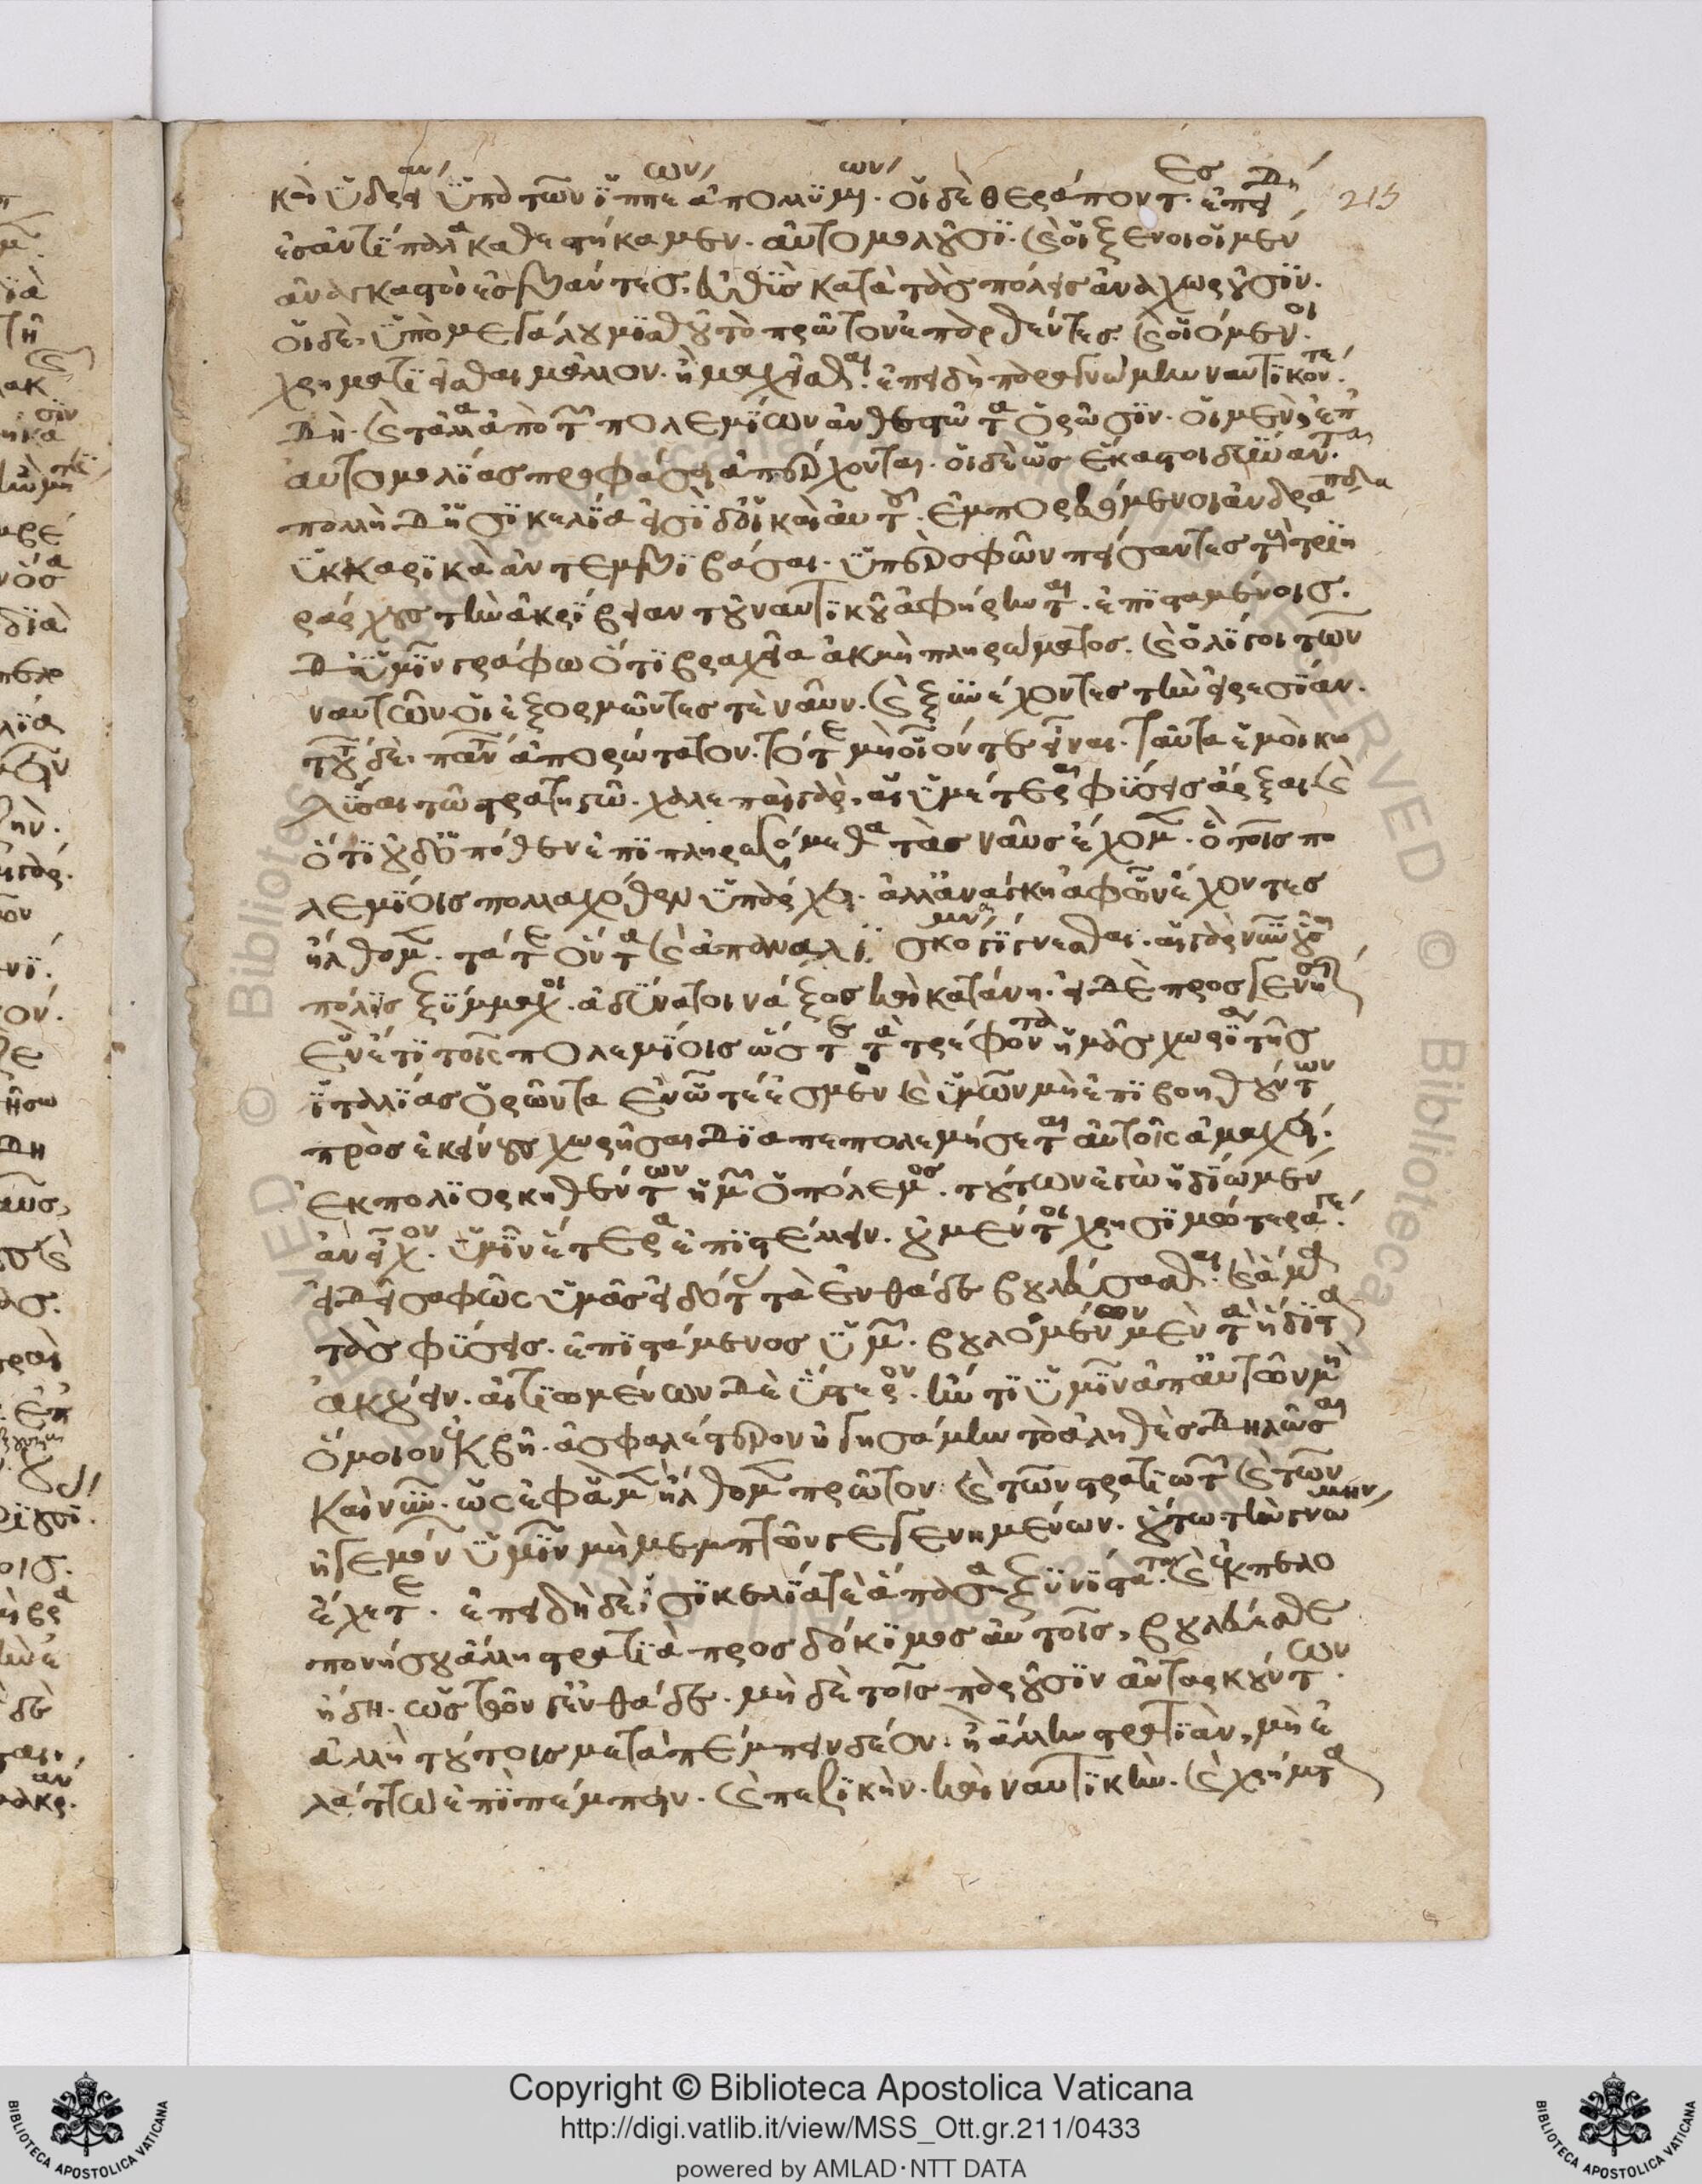 καὶ ὑδρείαν ὑπὸ τῶν ἱππέων ἀπολλυμένων. οἱ δὲ θεράποντες ἐπειδὴ 215
ἐς ἀντίπαλα καθεστήκαμεν. αὐτομολοῦσι. καὶ οἱ ξένοι οἱ μὲν
ἀναγκαστοὶ ἐσβάντες. εὐθὺς κατὰ τὰς πόλεις ἀναχωροῦσιν.
οἱ δὲ. ὑπὸ μεγάλου μισθοῦ τὸ πρῶτον ἐπαρθέντες. καὶ οἰόμενοι
χρηματιεῖσθαι μᾶλλον. ἢ μαχεῖσθαι. ἐπειδὴ παρὰ γνώμην ναυτικόν τε
δὴ. καὶ τἄλλα ἀπὸ τῶν πολεμίων ἀνθεστῶτα ὁρῶσιν. οἱ μὲν ἐπ'
αὐτομολίας προφάσει ἀπέρχονται. οἱ δὲ ὡς ἕκαστοι δύνανται.
πολλὴ δ' ἡ σικελία εἰσὶ δ' οἳ καὶ αὐτοῦ. ἐμπορευόμενοι ἀνδράποδα
ὑκκαρικὰ ἀντεμβιβάσαι. ὑπὲρ σφῶν πείσαντες τοὺς τριη
ράρχους τὴν ἀκρίβειαν τοῦ ναυτικοῦ ἀφῄρηνται. ἐπισταμένοις.
δ' ὑμῖν γράφω ὅτι βραχεῖα ἀκμὴ πληρώματος. καὶ ὀλίγοι τῶν
ναυτῶν οἱ ἐξορμῶντες τὲ ναῦν. καὶ ξυνέχοντες τὴν εἰρεσίαν.
τούτων δὲ. πάντων ἀπορώτατον. τό τε μὴ οἷόν τε εἶναι. ταῦτα ἐμοὶ κω
λῦσαι τῷ στρατηγῷ. χαλεπαὶ γὰρ. αἱ ὑμέτεραι φύσεις ἄρξαι. καὶ
ὅτι οὐδ' ὁπόθεν ἐπιπληρωσόμεθα τὰς ναῦς ἔχομεν. ὃ τοῖς πο
λεμίοις πολλαχόθεν ὑπάρχει. ἀλλ' ἀνάγκη ἀφ' ὧν ἔχοντες
ἤλθομεν. τά τε ὄντα καὶ ἀπαναλισκόμενα γίγνεσθαι. αἱ γὰρ νῦν οὖσαι
πόλεις ξύμμαχοι. ἀδύνατοι νάξος καὶ κατάνη. εἰ δὲ προσγενήσεται
ἓν ἔτι τοῖς πολεμίοις ὥστε τὰ τρέφοντα ἡμᾶς χωρία τῆς
ἰταλίας ὁρῶντα ἐν ᾧ τέ ἐσμεν καὶ ὑμῶν μὴ ἐπιβοηθούντων
πρὸς ἐκείνους χωρῆσαι διαπεπολεμήσεται αὐτοῖς ἀμαχεὶ.
ἐκπολιορκηθέντων ἡμῶν ὁ πόλεμος. τούτων ἐγὼ ἡδίω μὲν
ἂν εἶχον. ὑμῖν ἕτερα ἐπιστέλλειν. οὐ μέντοι χρησιμώτερά γε.
εἰ δεῖ σαφῶς ὑμᾶς εἰδότας τὰ ἐνθάδε βουλεύσασθαι. καὶ ἅμα
τὰς φύσεις. ἐπιστάμενος ὑμῶν. βουλομένων μὲν τὰ ἥδιστα
ἀκούειν. αἰτιωμένων δὲ ὕστερον. ἤν τι ὑμῖν ἀπ' αὐτῶν μὴ
ὅμοιον ἐκβῇ. ἀσφαλέστερον ἡγησάμην τὸ ἀληθὲς δηλῶσαι
καὶ νῦν. ὡς ἐφ' ἃ μὲν ἤλθομεν πρῶτον. καὶ τῶν στρατιωτῶν καὶ τῶν
ἡγεμόνων ὑμῖν μὴ μεμπτῶν γεγενημένων. οὕτω τὴν γνώμην
ἔχετε. ἐπειδὴ δὲ σικελία τὲ ἅπασα ξυνίσταται καὶ ἐκ πελο
πονήσου ἄλλη στρατιὰ προσδόκιμος αὐτοῖς, βουλεύεσθε
ἤδη. ὡς τῶν γ' ἐνθάδε. μὴ δὲ τοῖς παροῦσιν ἀνταρκούντων.
ἀλλ' ἢ τούτοις μεταπέμπειν δέον. ἢ ἄλλην στρατιὰν, μὴ ἐ
λάττω ἐπιπέμπειν. καὶ πεζικὴν. καὶ ναυτικὴν. καὶ χρήματα
Copyright © Biblioteca Apostolica Vaticana
http://digi.vatlib.it/view/MSS_Ott.gr.211/0433
powered by AMLAD·NTT DATA